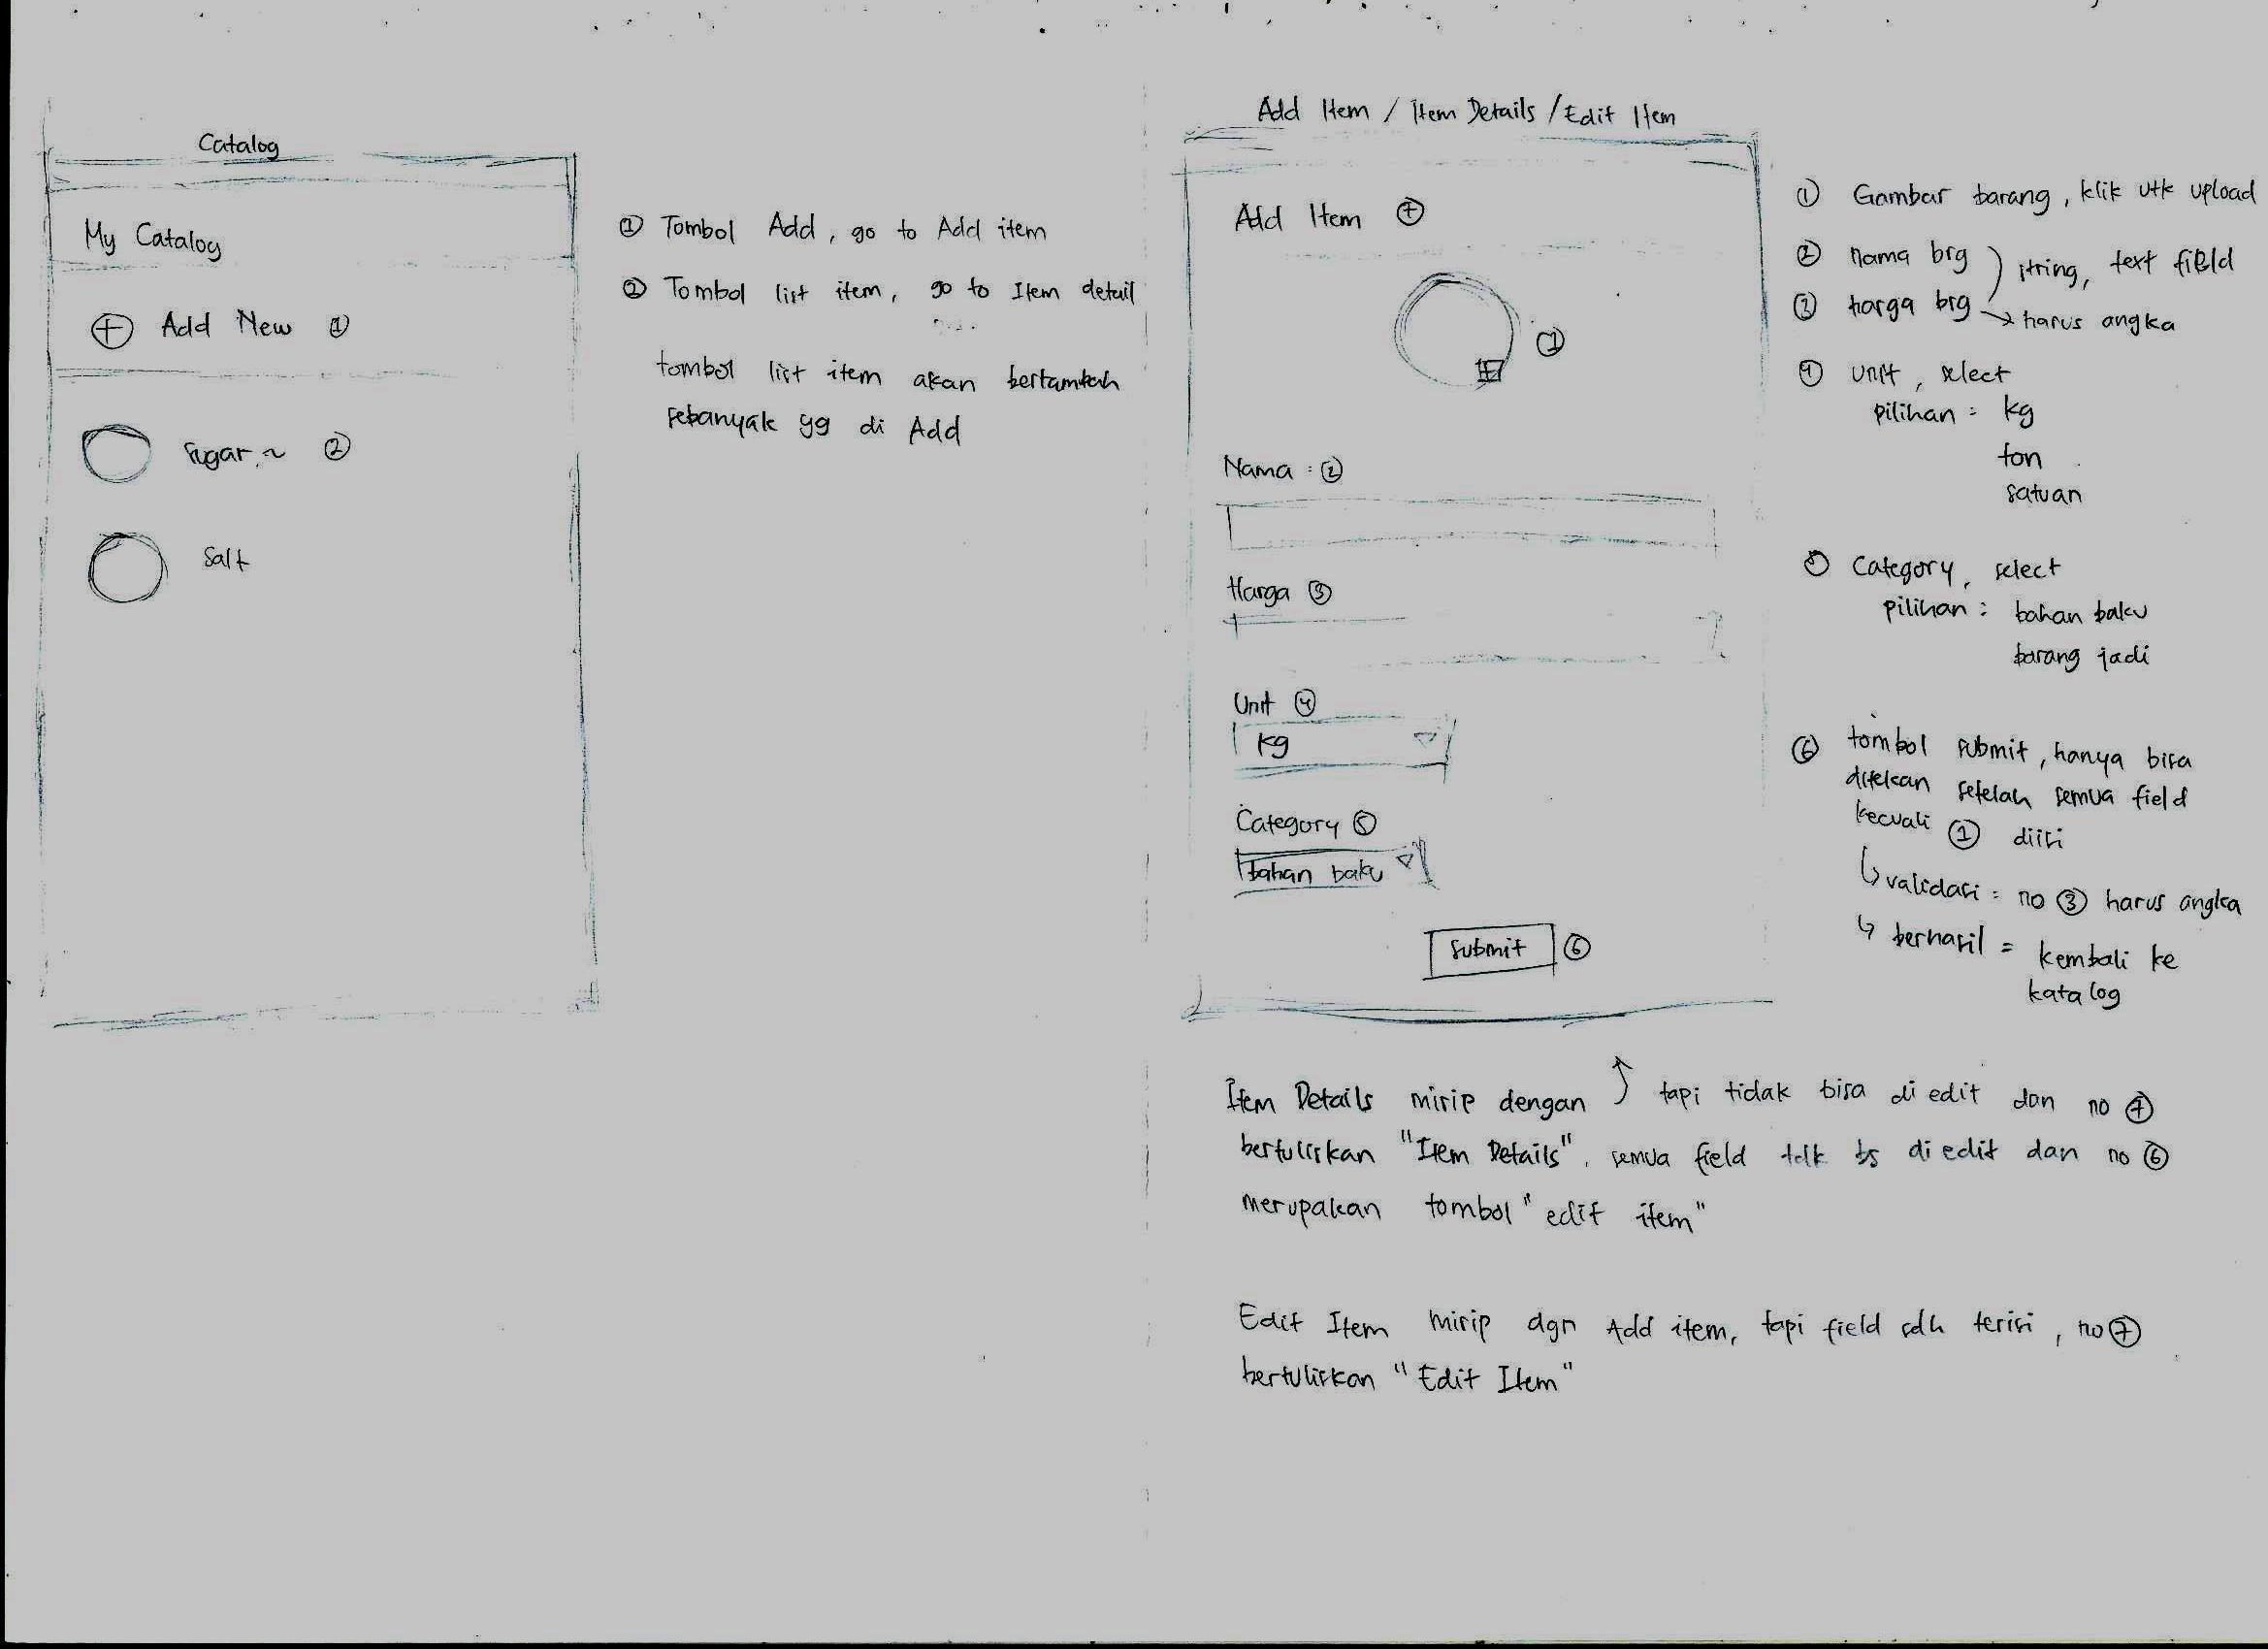 Catalog
My Catalog
⊕ Add New ①
Sugar ~ ②
Salt
① Tombol Add, go to Add item
② Tombol list item, go to Item detail
tombol list item akan bertambah
sebanyak yg di Add
Add Item / Item Details / Edit Item
Add Item ⑦
①
Nama : ②
Harga ③
Unit ④
kg
Category ⑤
bahan baku
Submit ⑥
① Gambar barang, klik utk upload
② nama brg ) string, text field
③ harga brg → harus angka
④ unit, select
pilihan : kg
ton
satuan
⑤ Category, select
pilihan : bahan baku
barang jadi
⑥ tombol submit, hanya bisa
ditekan setelah semua field
kecuali ① diisi
↳ validasi = no ③ harus angka
↳ berhasil = kembali ke
katalog
Item Details mirip dengan ↑ tapi tidak bisa di edit dan no ⑦
bertuliskan "Item Details". semua field tdk bs di edit dan no ⑥
merupakan tombol "edit item"
Edit Item mirip dgn Add item, tapi field sdh terisi, no ⑦
bertuliskan "Edit Item"